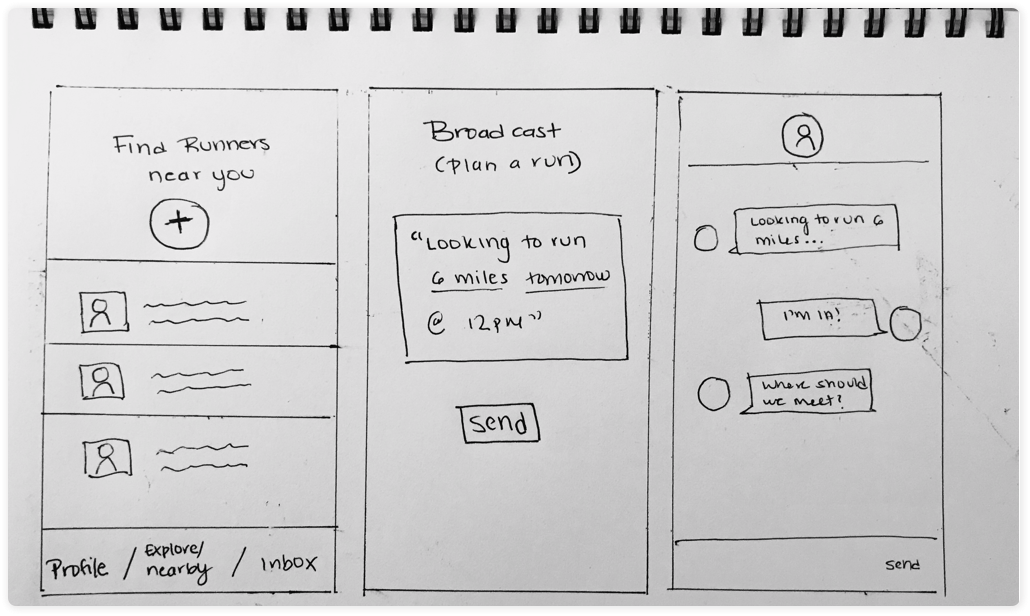 Find Runners
near you
+
Profile / Explore/
nearby / Inbox
Broadcast
(plan a run)
"Looking to run
6 miles tomorrow
@ 12pm"
send
Looking to run 6
miles...
I'm in!
Where should
we meet?
send